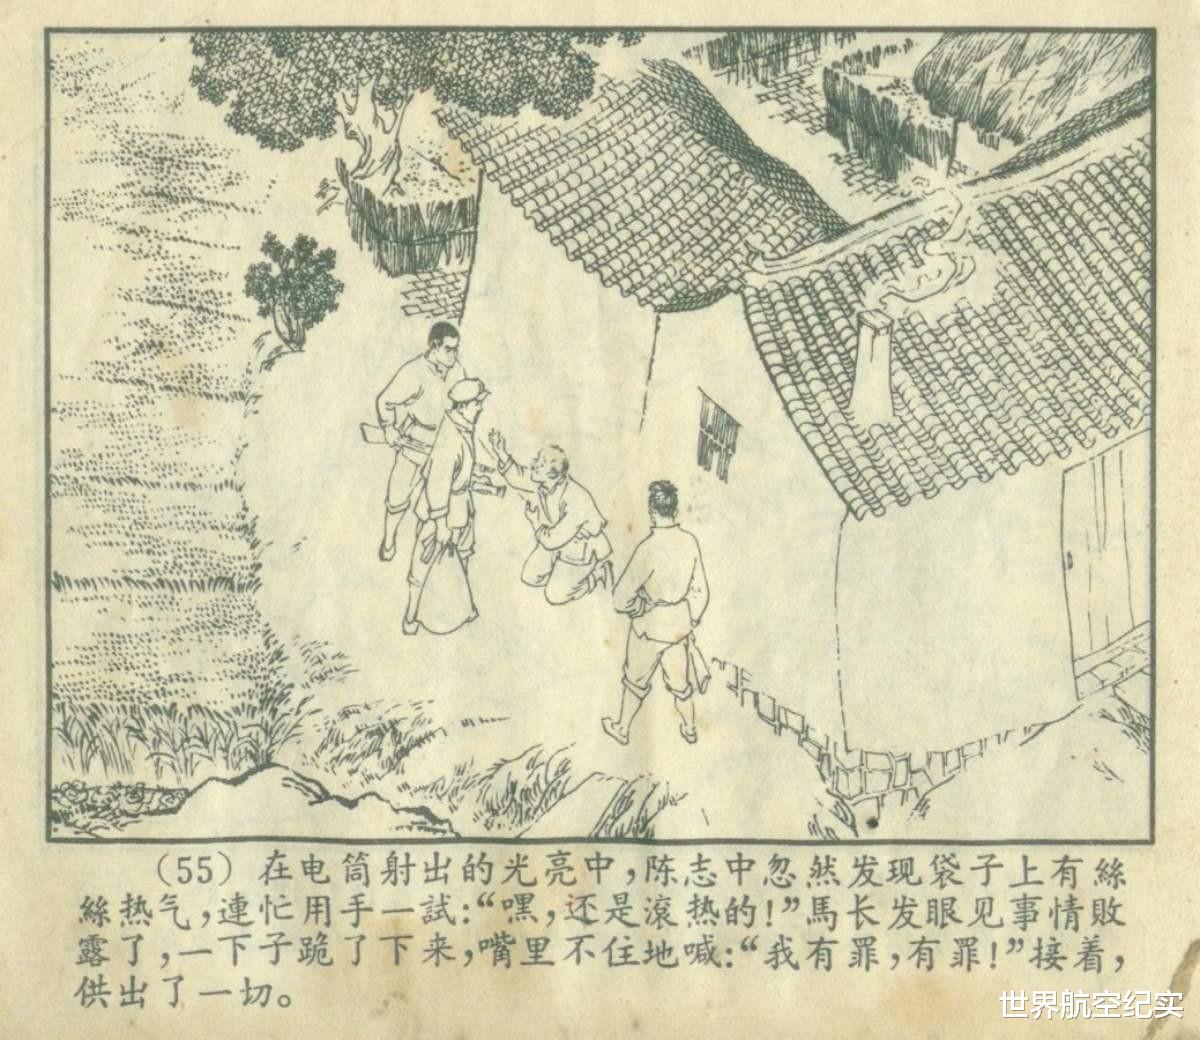 (55) 在电筒射出的光亮中，陈志中忽然发现袋子上有絲
絲热气，連忙用手一試：“嘿，还是滚热的！”馬长发眼见事情败
露了，一下子跪了下来，嘴里不住地喊：“我有罪，有罪！”接着，
供出了一切。
世界航空纪实